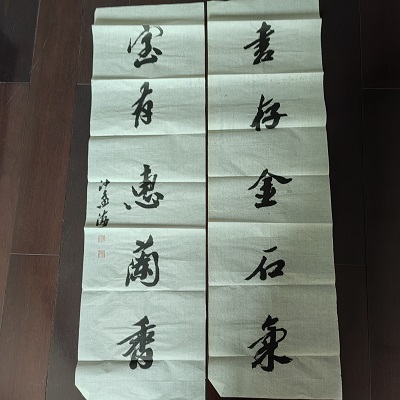 書存金石氣
室有惠蘭香
沙孟海